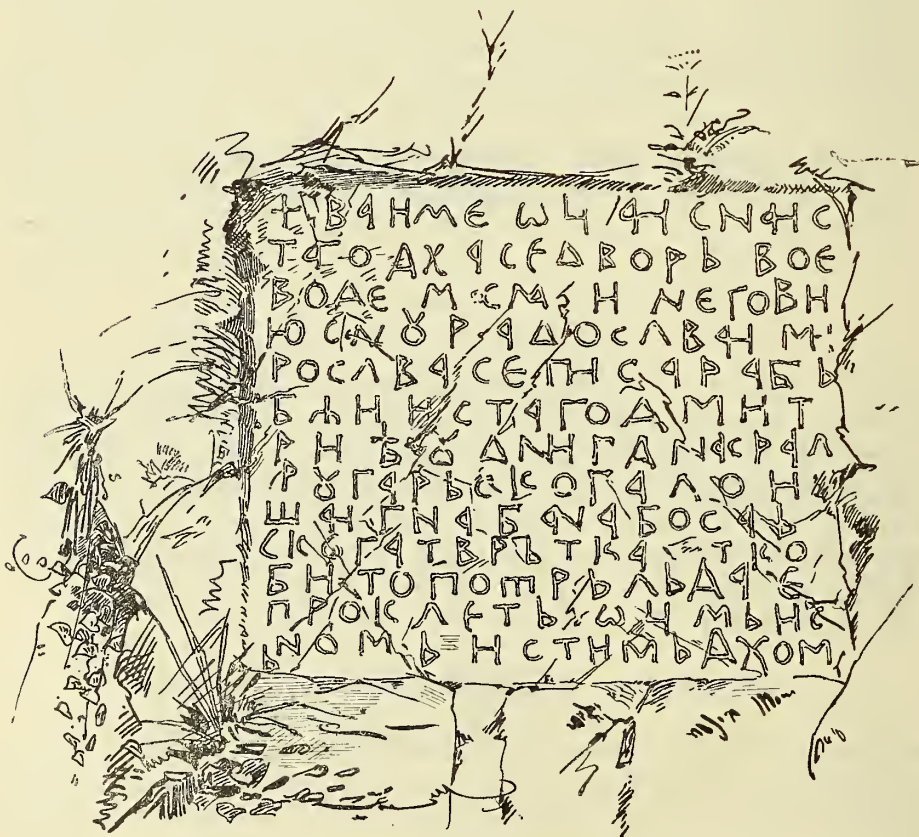 + ВА ИМЕ ѠЦА И СНА И С
ТАГО ДХА А СЕ ДВОРЬ ВОЕ
ВОДЕ МАСНА И НЕГОВИ
Ю СНȢ РАДОСЛВА И МИ
РОСЛВА СЕ ПИСА РАБЬ
БЖИ И СТАГО ДМИТ
РИ Ȣ ДНИ Г А НА КРАЛ
Р ȢГАРЬСКОГА ЛОИ
ША И ГНА БАНА БОСАЬ
СКОГА ТВРЪТКА ТКО
БИ ТО ПОТРЬЛЬ ДА Е
ПРОКЛЕТЬ ѠЦИМЬ И С
ЬНОМЬ И СТИМЬ ДХОМ